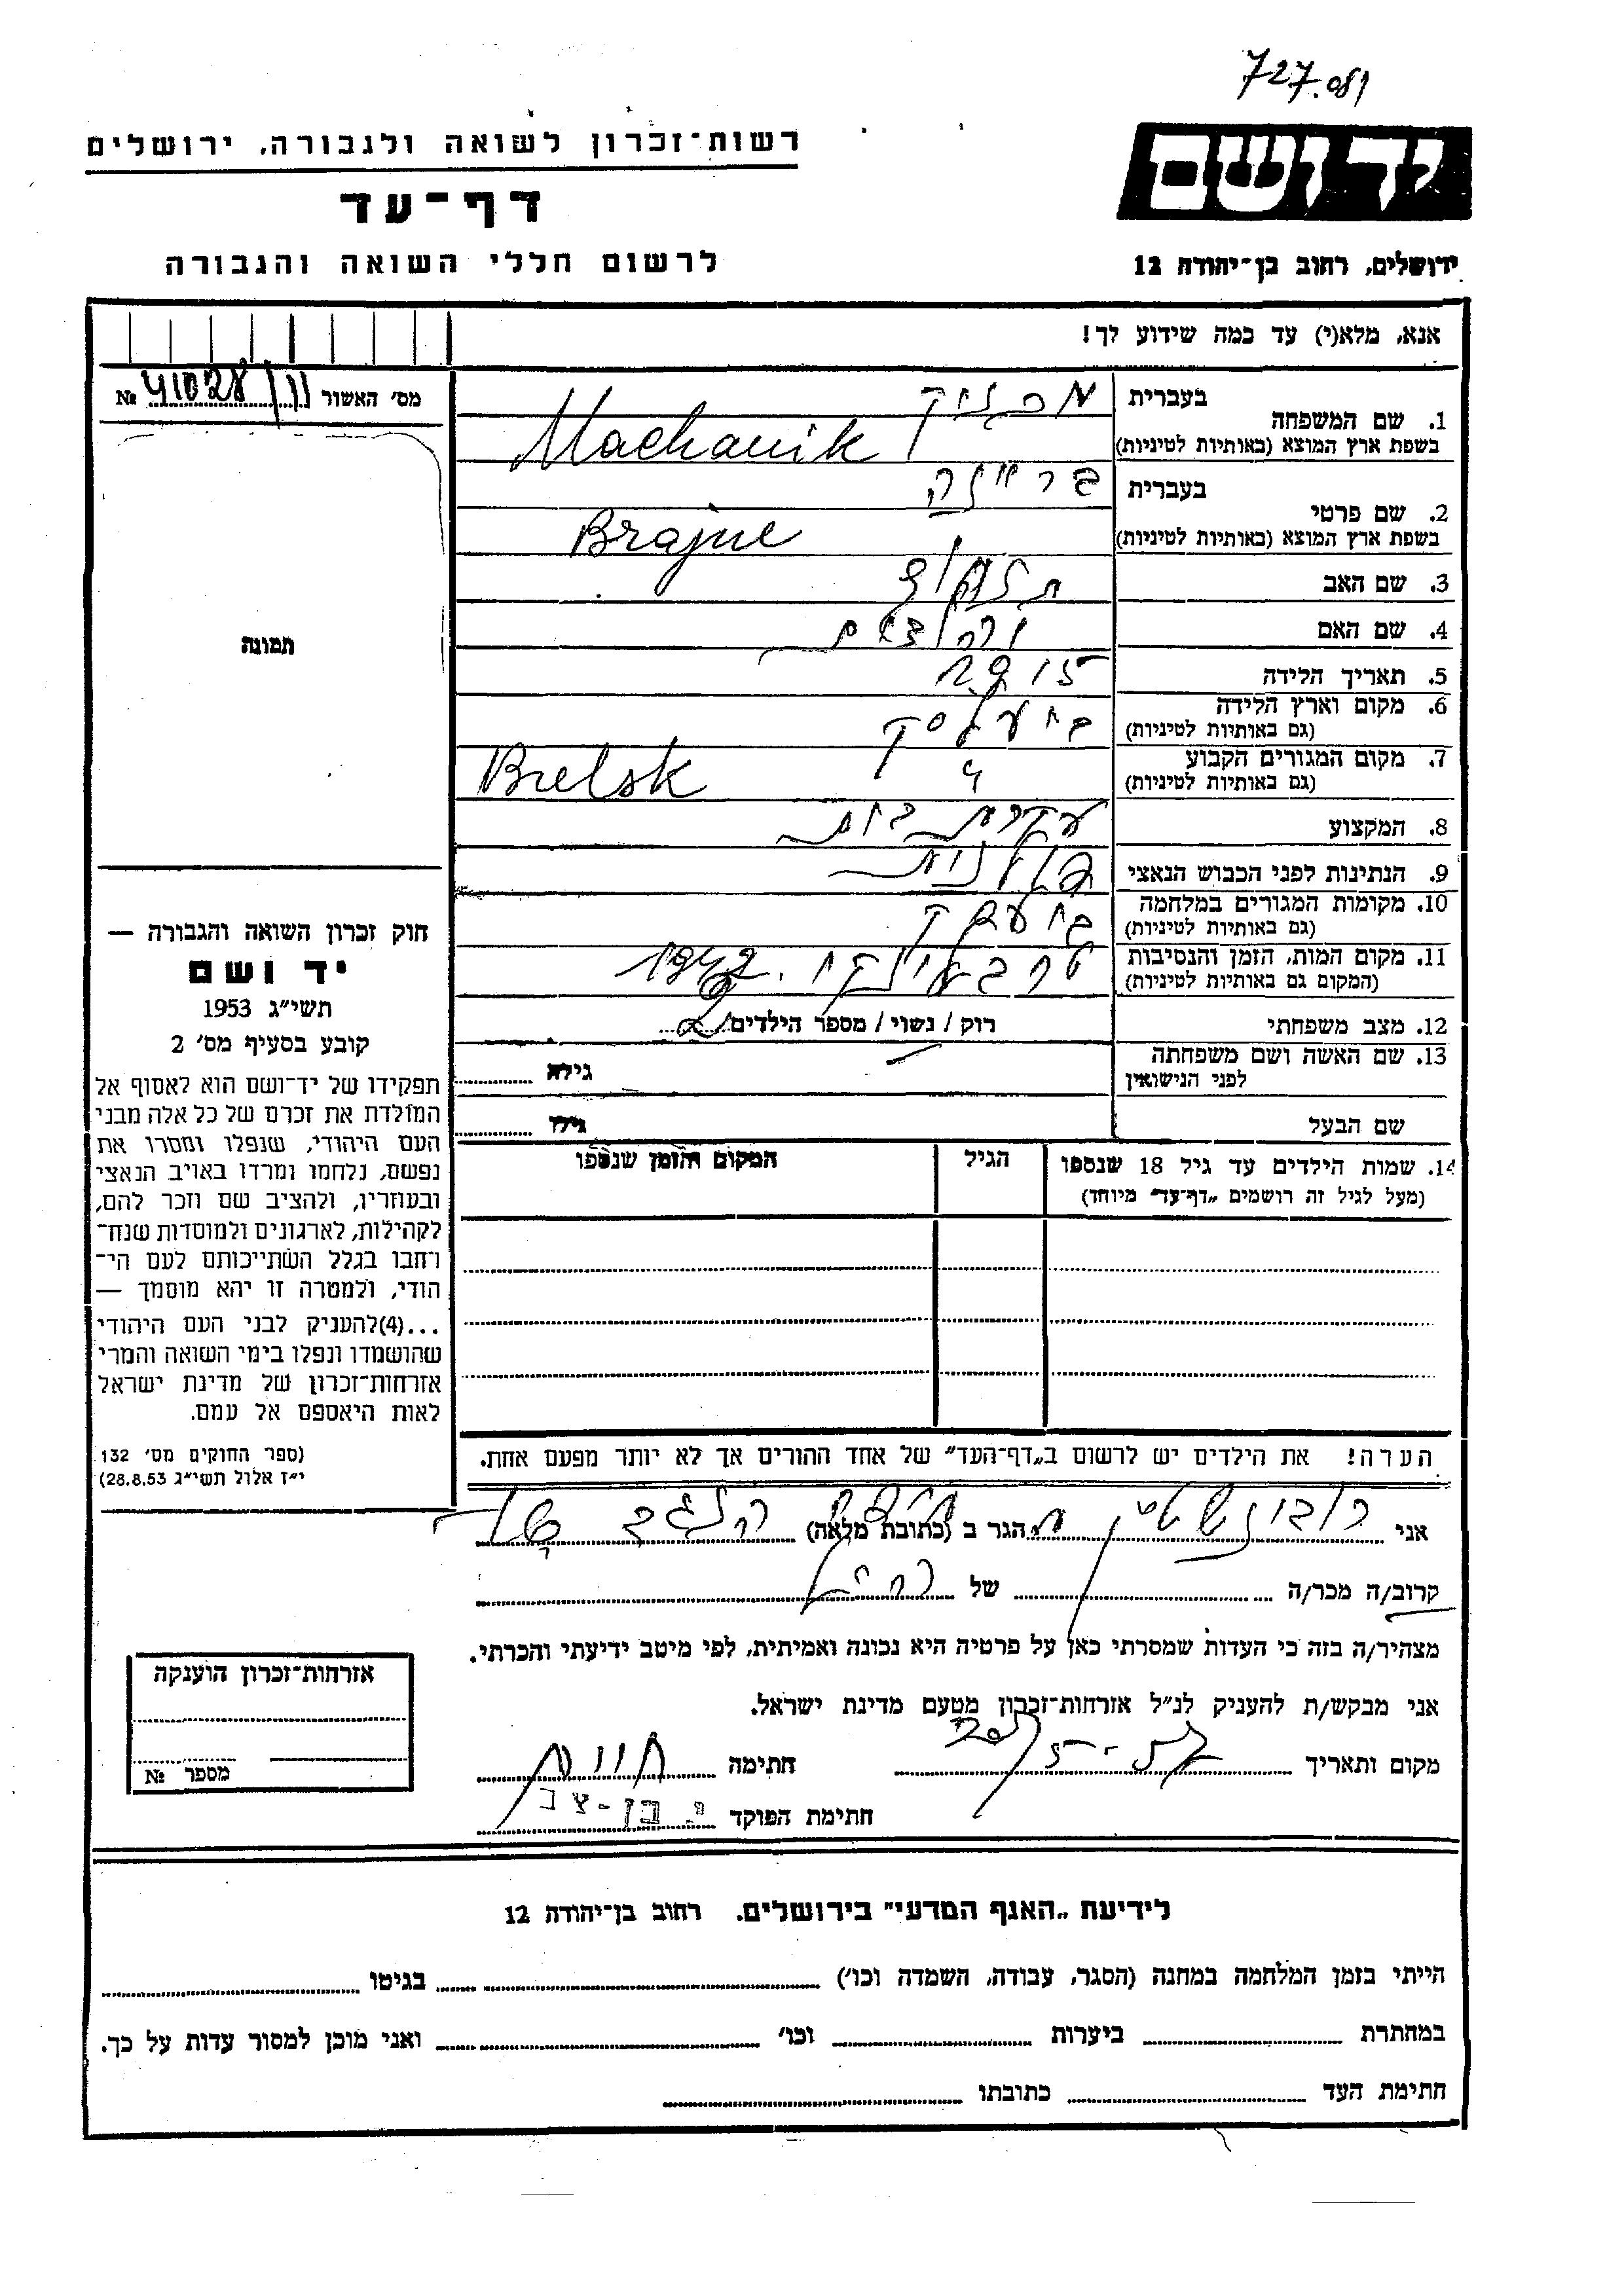 727.081
רשות־זכרון לשואה ולגבורה, ירושלים
יד ושם
דף־עד
לרשום חללי השואה והגבורה
ירושלים, רחוב בן־יהודה 12
אנא, מלא(י) עד כמה שידוע לך!
מס׳ האשור № 41028
1. שם המשפחה
בעברית
בשפת ארץ המוצא (באותיות לטיניות)
Machanik
2. שם פרטי
בעברית
בריינה
בשפת ארץ המוצא (באותיות לטיניות)
Brajne
3. שם האב
4. שם האם
5. תאריך הלידה 1915
6. מקום וארץ הלידה
(גם באותיות לטיניות)
ביעלסק
7. מקום המגורים הקבוע
(גם באותיות לטיניות)
Bielsk
8. המקצוע עקרת בית
9. הנתינות לפני הכבוש הנאצי
10. מקומות המגורים במלחמה
(גם באותיות לטיניות)
11. מקום המות, הזמן והנסיבות
(המקום גם באותיות לטיניות)
טרבלינקי 1942
12. מצב משפחתי רוק / נשוי / מספר הילדים
13. שם האשה ושם משפחתה
לפני הנישואין
גילה
שם הבעל גילו
14. שמות הילדים עד גיל 18 שנספו
(מעל לגיל זה רושמים „דף־עד״ מיוחד)
הגיל
המקום והזמן שנספו
הערה! את הילדים יש לרשום ב„דף־העד״ של אחד ההורים אך לא יותר מפעם אחת.
תמונה
חוק זכרון השואה והגבורה —
יד ושם
תשי״ג 1953
קובע בסעיף מס׳ 2
תפקידו של יד־ושם הוא לאסוף אל
המולדת את זכרם של כל אלה מבני
העם היהודי, שנפלו ומסרו את
נפשם, נלחמו ומרדו באויב הנאצי
ובעוזריו, ולהציב שם וזכר להם,
לקהילות, לארגונים ולמוסדות שנח־
רחבו בגלל השתייכותם לעם הי־
הודי, ולמטרה זו יהא מוסמך —
...(4)להעניק לבני העם היהודי
שהושמדו ונפלו בימי השואה והמרי
אזרחות־זכרון של מדינת ישראל
לאות היאספם אל עמם.
(ספר החוקים מס׳ 132
י״ז אלול תשי״ג 28.8.53)
אני רובינשטיין הגר ב (כתובת מלאה)
קרוב/ה מכר/ה של
מצהיר/ה בזה כי העדות שמסרתי כאן על פרטיה היא נכונה ואמיתית, לפי מיטב ידיעתי והכרתי.
אני מבקש/ת להעניק לנ״ל אזרחות־זכרון מטעם מדינת ישראל.
מקום ותאריך חתימה
חתימת הפוקד י. בן-צבי
אזרחות־זכרון הוענקה
מספר №
לידיעת „האגף המדעי״ בירושלים. רחוב בן־יהודה 12
הייתי בזמן המלחמה במחנה (הסגר, עבודה, השמדה וכו׳) בגיטו
במחתרת ביערות וכו׳ ואני מוכן למסור עדות על כך.
חתימת העד כתובתו